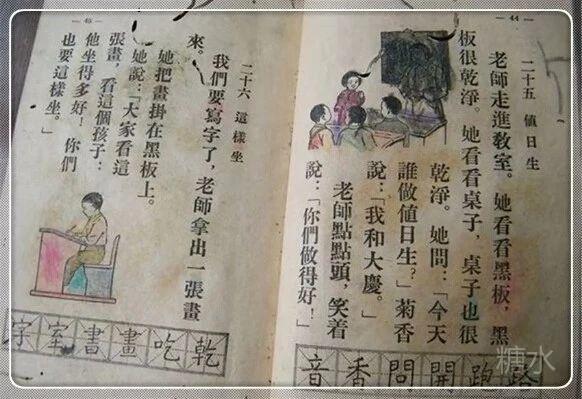 — 44 —
二十五 值日生
老師走進教室。她看看黑板，黑
板很乾淨。她看看桌子，桌子也很
乾淨。她問：「今天
誰做值日生？」菊香
說：「我和大慶。」
老師點點頭，笑着
說：「你們做得好！」
路跑開問香音
— 45 —
二十六 這樣坐
我們要寫字了，老師拿出一張畫
來。
她把畫掛在黑板上。
她說：「大家看這
張畫，看這個孩子：
他坐得多好！你們
也要這樣坐。」
乾吃畫書室字
糖水